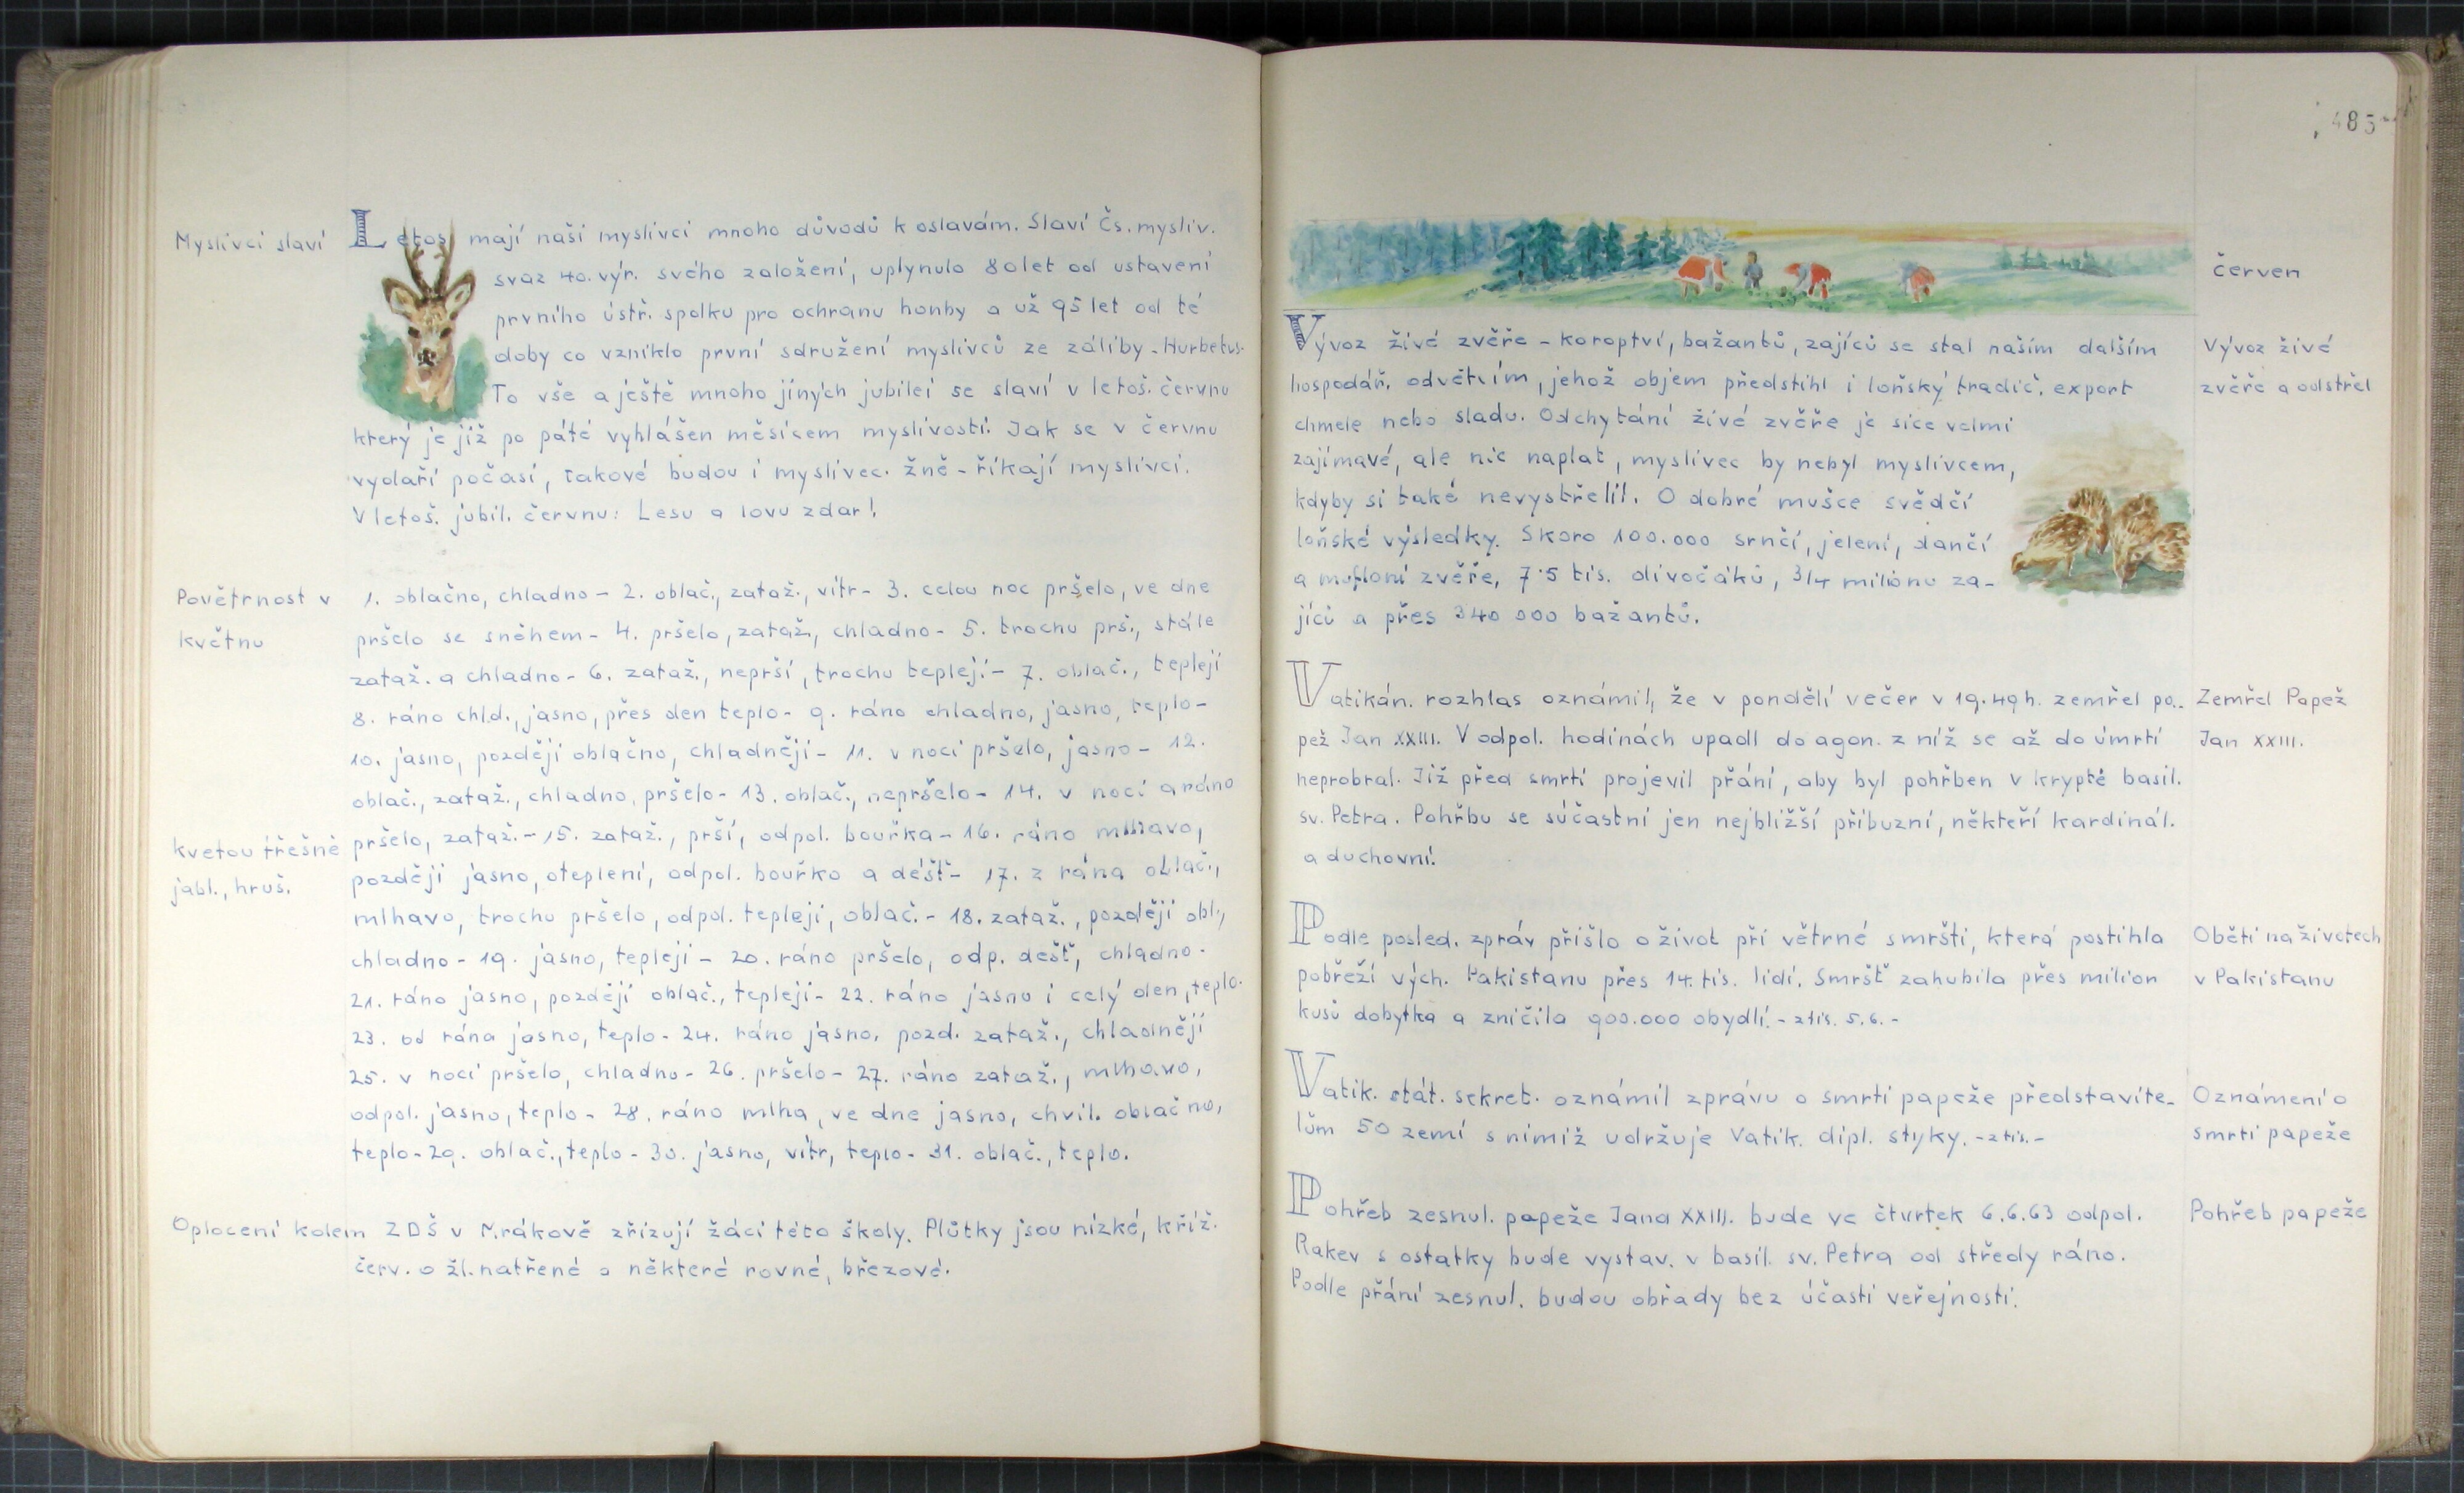 Myslivci slaví
Letos mají naši myslivci mnoho důvodů k oslavám. Slaví Čs. mysliv.
svaz 40. výr. svého založení, uplynulo 80 let od ustavení
prvního ústř. spolku pro ochranu honby a už 95 let od té
doby co vzniklo první sdružení myslivců ze záliby - Hurbetus.
To vše a ještě mnoho jiných jubileí se slaví v letoš. červnu
který je již po páté vyhlášen měsícem myslivosti. Jak se v červnu
vydaří počasí, takové budou i myslivec. žně - říkají myslivci.
V letoš. jubil. červnu: Lesu a lovu zdar!
Povětrnost v
květnu
1. oblačno, chladno - 2. oblač., zataž., vítr - 3. celou noc pršelo, ve dne
pršelo se sněhem - 4. pršelo, zataž., chladno - 5. trochu prš., stále
zataž. a chladno - 6. zataž., neprší, trochu tepleji - 7. oblač., tepleji
8. ráno chld., jasno, přes den teplo - 9. ráno chladno, jasno, teplo -
10. jasno, později oblačno, chladněji - 11. v noci pršelo, jasno - 12.
oblač., zataž., chladno, pršelo - 13. oblač., nepršelo - 14. v noci a ráno
kvetou třešně
jabl., hruš.
pršelo, zataž. - 15. zataž., prší, odpol. bouřka - 16. ráno mlhavo,
později jasno, oteplení, odpol. bouřka a déšť - 17. z rána oblač.,
mlhavo, trochu pršelo, odpol. tepleji, oblač. - 18. zataž., později obl.,
chladno - 19. jasno, tepleji - 20. ráno pršelo, odp. dešť, chladno -
21. ráno jasno, později oblač., tepleji - 22. ráno jasno i celý den, teplo.
23. od rána jasno, teplo - 24. ráno jasno, pozd. zataž., chladněji
25. v noci pršelo, chladno - 26. pršelo - 27. ráno zataž., mlhavo,
odpol. jasno, teplo - 28. ráno mlha, ve dne jasno, chvil. oblačno,
teplo - 29. oblač., teplo - 30. jasno, vítr, teplo - 31. oblač., teplo.
Oplocení kolem ZDŠ v Mrákově zřizují žáci této školy. Plůtky jsou nízké, kříž.
červ. a žl. natřené a některé rovné, březové.
483
červen
Vývoz živé
zvěře a odstřel
Vývoz živé zvěře - koroptví, bažantů, zajíců se stal naším dalším
hospodář. odvětvím, jehož objem předstihl i loňský tradič. export
chmele nebo sladu. Odchytání živé zvěře je sice velmi
zajímavé, ale nic naplat, myslivec by nebyl myslivcem,
kdyby si také nevystřelil. O dobré mušce svědčí
loňské výsledky. Skoro 100.000 srnčí, jelení, dančí
a mufloní zvěře, 7.5 tis. divočáků, 3/4 miliónu za-
jíců a přes 340 000 bažantů.
Zemřel Papež
Jan XXIII.
Vatikán. rozhlas oznámil, že v pondělí večer v 19.49 h. zemřel pa-
pež Jan XXIII. V odpol. hodinách upadl do agon. z níž se až do úmrtí
neprobral. Již před smrtí projevil přání, aby byl pohřben v kryptě basil.
sv. Petra. Pohřbu se súčastní jen nejbližší příbuzní, někteří kardinál.
a duchovní.
Oběti na životech
v Pakistanu
Podle posled. zpráv přišlo o život při větrné smršti, která postihla
pobřeží vých. Pakistanu přes 14. tis. lidí. Smršť zahubila přes milion
kusů dobytka a zničila 900.000 obydlí. - z tis. 5.6. -
Oznámení o
smrti papeže
Vatik. stát. sekret. oznámil zprávu o smrti papeže představite-
lům 50 zemí s nimiž udržuje Vatik. dipl. styky. - z tis. -
Pohřeb papeže
Pohřeb zesnul. papeže Jana XXIII. bude ve čtvrtek 6.6.63 odpol.
Rakev s ostatky bude vystav. v basil. sv. Petra od středy ráno.
Podle přání zesnul. budou obřady bez účasti veřejnosti.